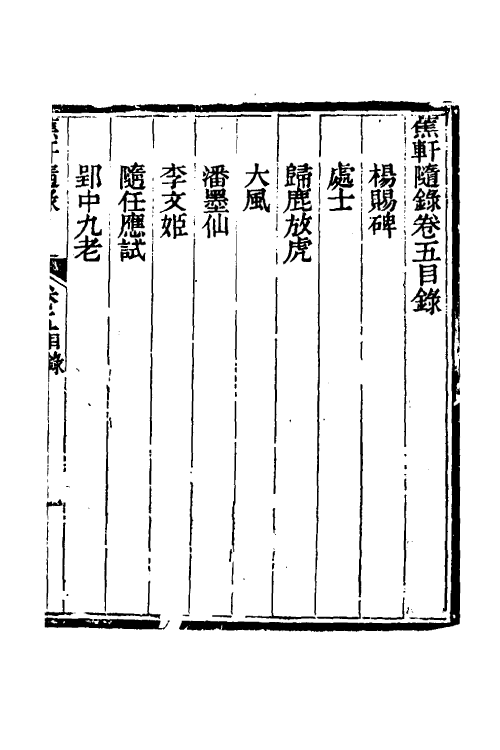 蕉軒隨錄卷五目錄
楊賜碑
處士
歸鹿放虎
大風
潘墨仙
李文姬
隨任應試
郢中九老